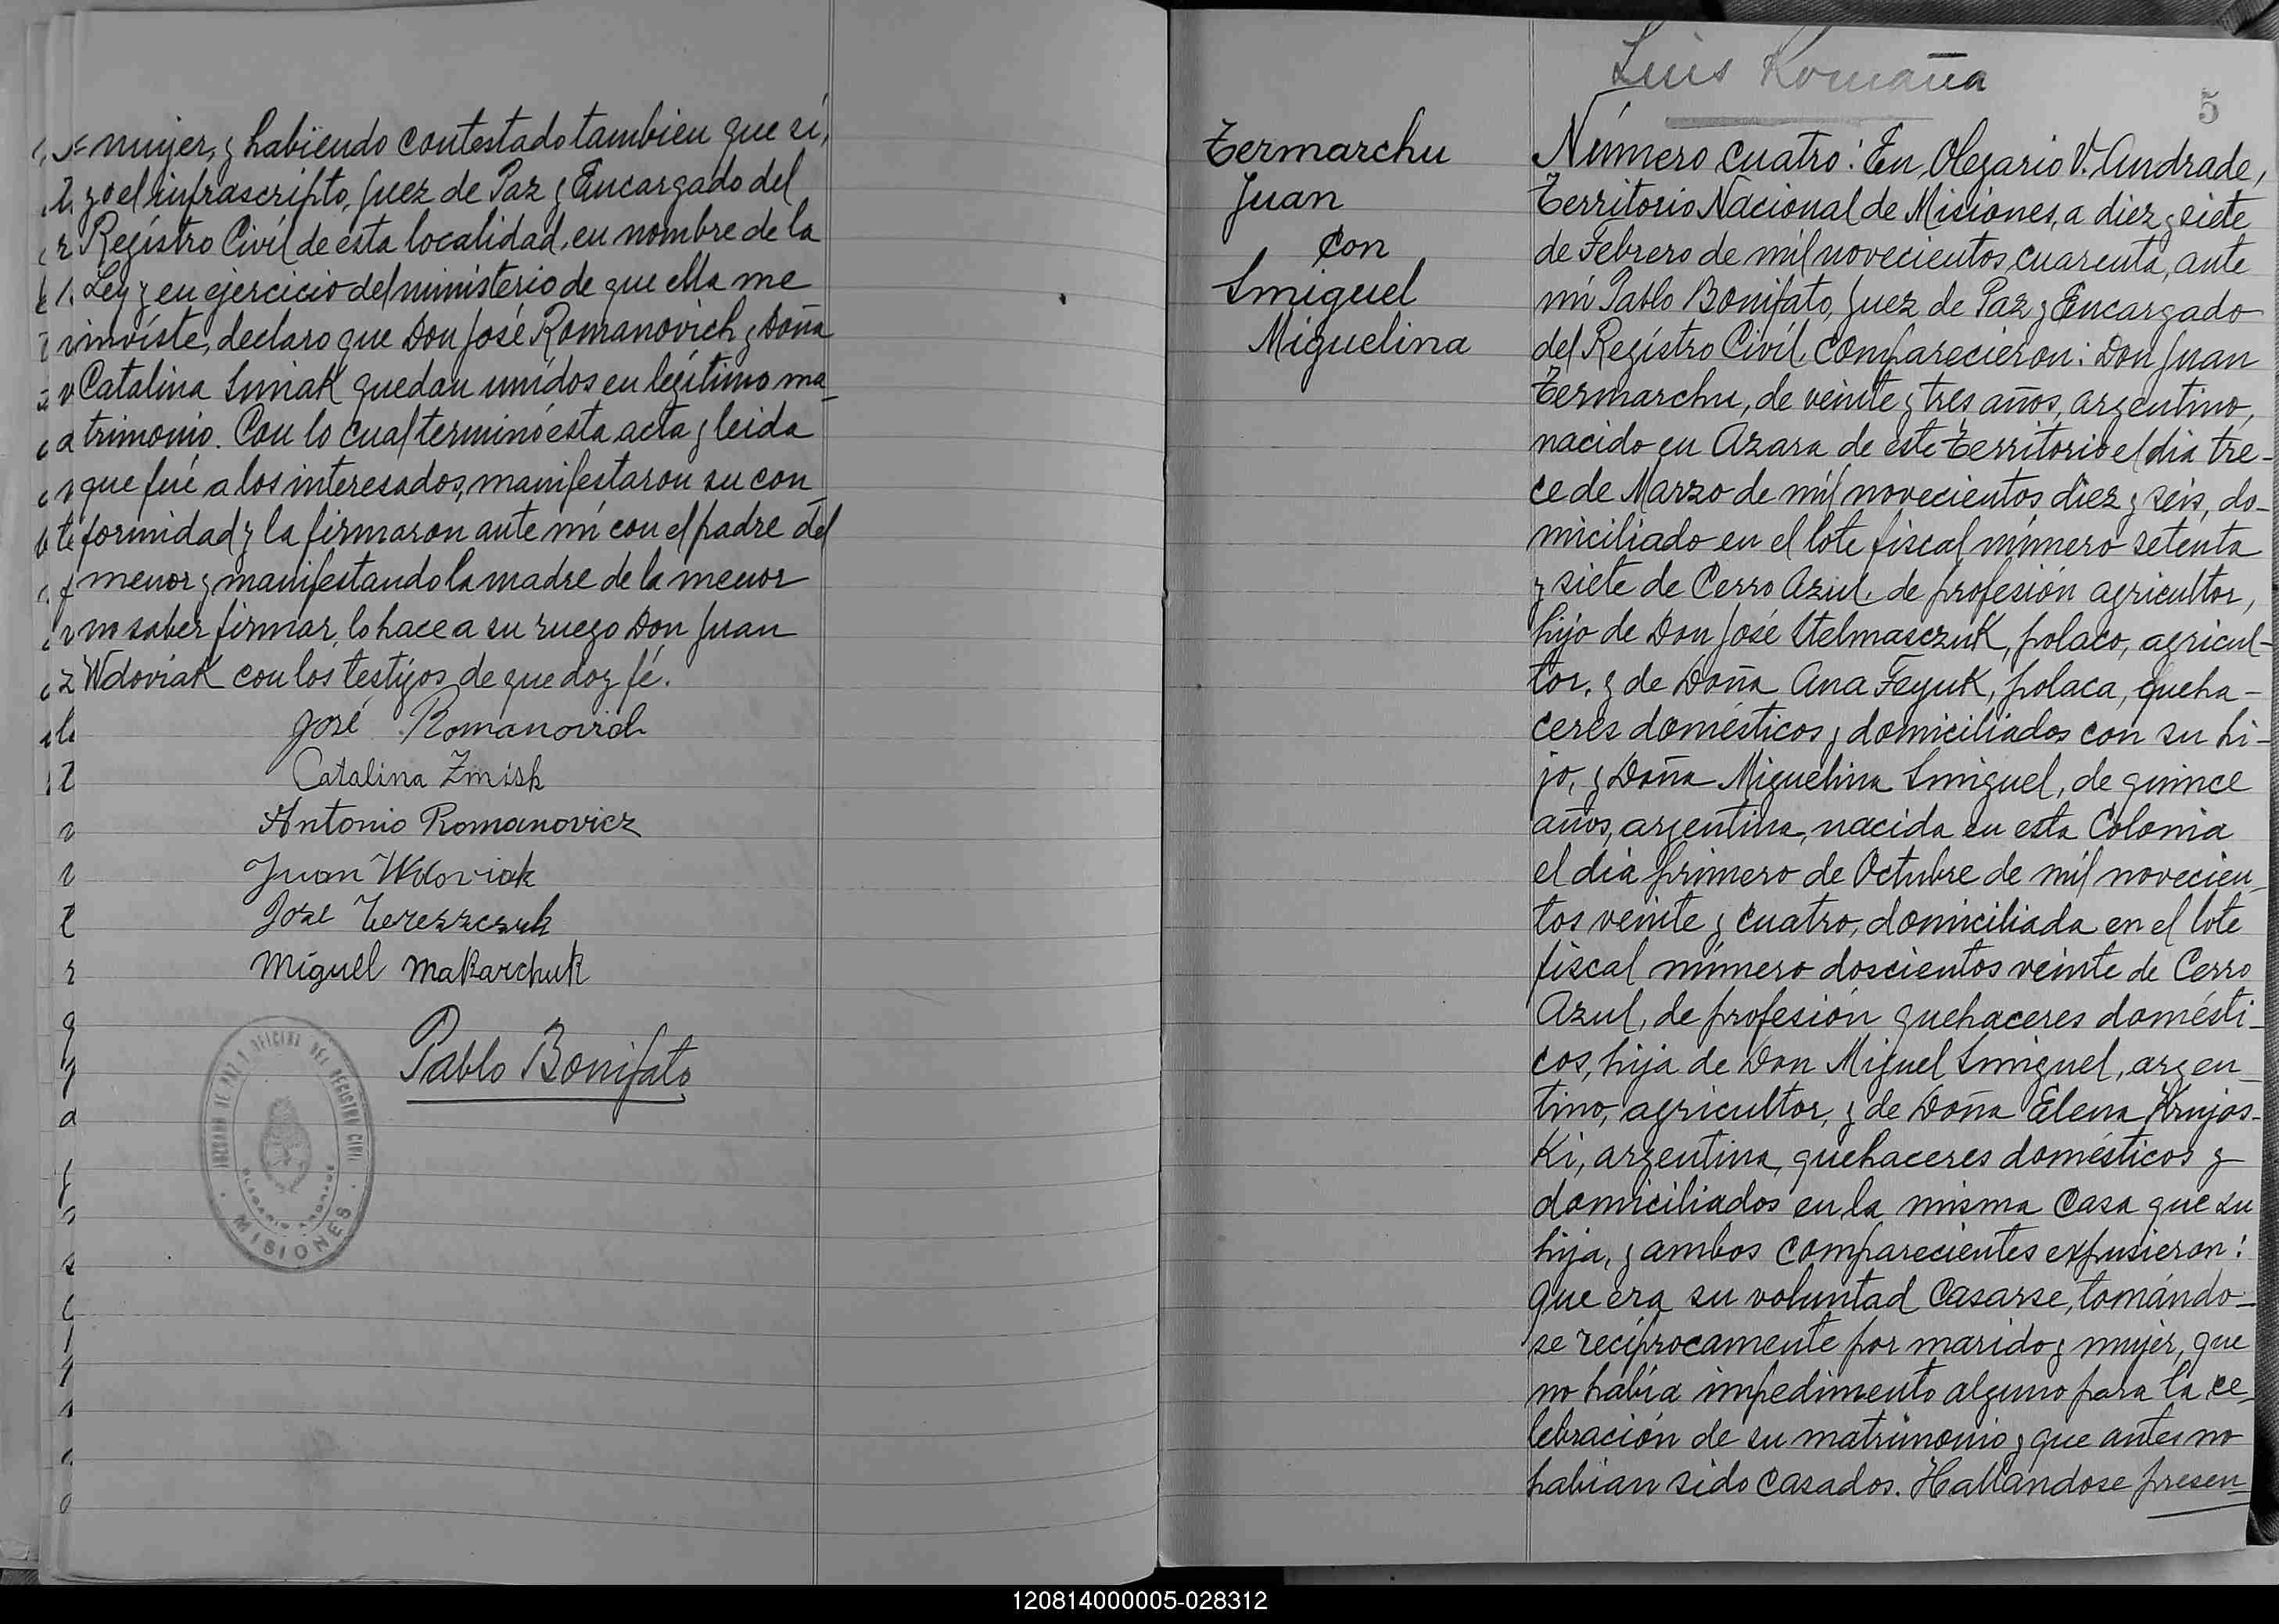 mujer, y habiendo contestado tambien que sí,
yo el infrascripto, Juez de Paz y Encargado del
Registro Civil de esta localidad, en nombre de la
Ley y en ejercicio del ministerio de que ella me
inviste, declaro que Don José Romanovich y Doña
Catalina Smiak quedan unidos en legítimo ma-
trimonio. Con lo cual terminó ésta acta y leida
que fué a los interesados, manifestaron su con-
formidad y la firmaron ante mí con el padre del
menor y manifestando la madre de la menor
no saber firmar, lo hace a su ruego Don Juan
Wdoviak con los testigos de que doy fé.
José Romanovich
Catalina Zmisk
Antonio Romanovicz
Juan Wdoviak
José Tereszczuk
Miguel Makarchuk
Pablo Bonifato
JUZGADO DE PAZ Y OFICINA DEL REGISTRO CIVIL
MISIONES
Luis Romaña
5
Termarchu
Juan
Con
Smiguel
Miguelina
Número cuatro: En Olegario V. Andrade,
Territorio Nacional de Misiones, a diez y siete
de Febrero de mil novecientos cuarenta, ante
mí Pablo Bonifato, Juez de Paz y Encargado
del Registro Civil, comparecieron: Don Juan
Termarchu, de veinte y tres años, argentino,
nacido en Azara de este Territorio el día tre-
ce de Marzo de mil novecientos diez y seis, do-
miciliado en el lote fiscal número setenta
y siete de Cerro Azul, de profesión agricultor,
hijo de Don José Stelmasczuk, polaco, agricul-
tor, y de Doña Ana Feyuk, polaca, queha-
ceres domésticos y domiciliados con su hi-
jo, y Doña Miguelina Smiguel, de quince
años, argentina, nacida en esta Colonia
el día primero de Octubre de mil novecien-
tos veinte y cuatro, domiciliada en el lote
fiscal número doscientos veinte de Cerro
Azul, de profesión quehaceres domésti-
cos, hija de Don Miguel Smiguel, argen-
tino, agricultor, y de Doña Elena Krujos-
ki, argentina, quehaceres domésticos y
domiciliados en la misma casa que su
hija, y ambos comparecientes expusieron:
que era su voluntad casarse, tomándo-
se recíprocamente por marido y mujer, que
no había impedimento alguno para la ce-
lebración de su matrimonio y que antes no
habían sido casados. Hallándose presen-
120814000005-028312